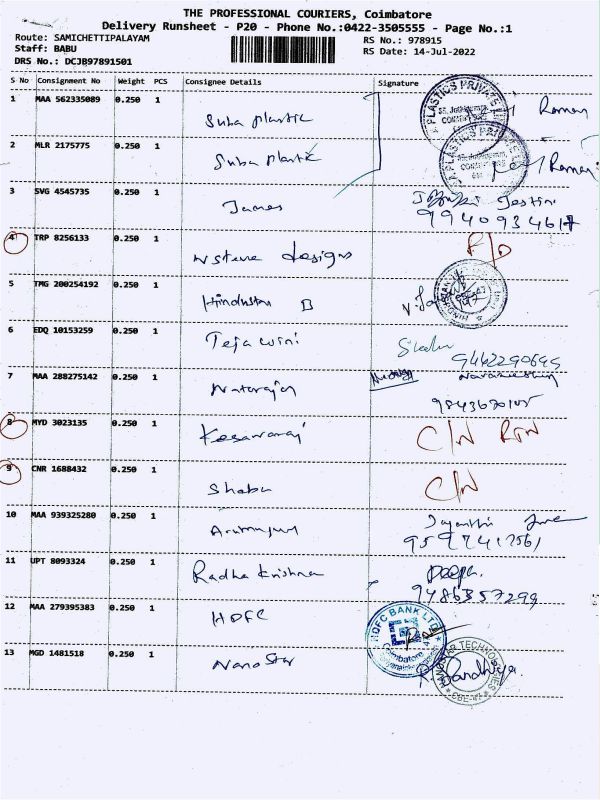 THE PROFESSIONAL COURIERS, Coimbatore
Delivery Runsheet - P20 - Phone No.:0422-3505555 - Page No.:1
Route: SAMICHETTIPALAYAM RS No.: 978915
Staff: BABU RS Date: 14-Jul-2022
DRS No.: DCJB97891501
S No Consignment No Weight PCS Consignee Details Signature
1 MAA 562335089 0.250 1 Suba plastic Raman
2 MLR 2175775 0.250 1 Suba plastic Raman
3 SVG 4545735 0.250 1 James
4 TRP 8256133 0.250 1 designs
5 TMG 200254192 0.250 1 Hindustan
6 EDQ 10153259 0.250 1 Tejaswini
7 MAA 288275142 0.250 1 Natarajan
8 MYD 3023135 0.250 1 Kesavaraj C/N RTN
9 CNR 1688432 0.250 1 Shabu C/N
10 MAA 939325280 0.250 1 Arumugam Jayanthi
11 UPT 8093324 0.250 1 Radha Krishna Deepa.
9486357299
12 MAA 279395383 0.250 1 HDFC HDFC BANK LTD Coimbatore
13 MGD 1481518 0.250 1 NanoStar R. Sandhiya TECHNOLOGIES